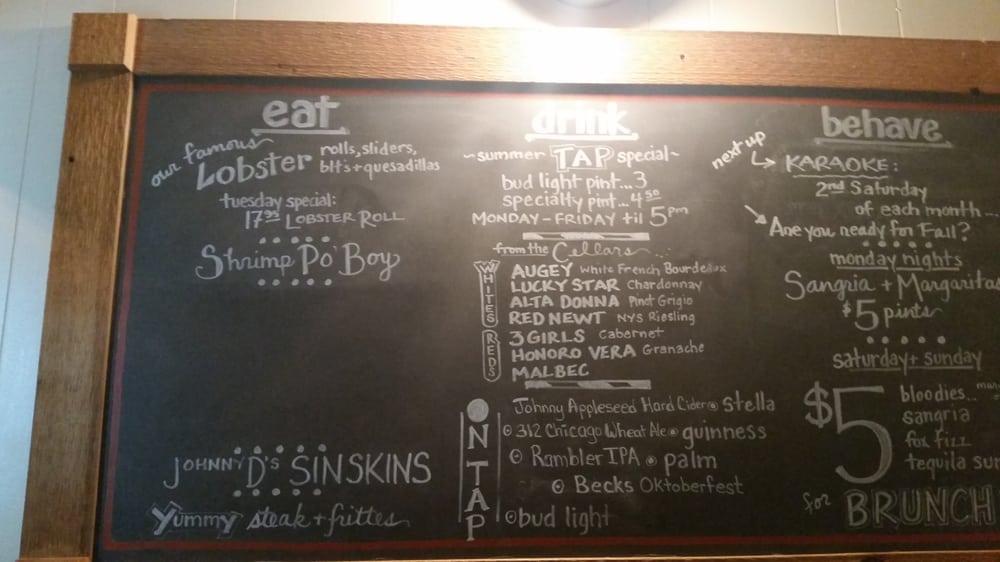 eat
our famous Lobster rolls, sliders,
blt's + quesadillas
tuesday special:
17.95 LOBSTER ROLL
Shrimp Po' Boy
JOHNNY D'S SINSKINS
Yummy steak + frittes
drink
~summer TAP special~
bud light pint...3
specialty pint...4 50
MONDAY - FRIDAY til 5pm
from the Cellars...
WHITES
AUGEY White French Bourdeaux
LUCKY STAR Chardonnay
ALTA DONNA Pinot Grigio
RED NEWT NYS Riesling
REDS
3 GIRLS Cabernet
HONORO VERA Granache
MALBEC
ON TAP
Johnny Appleseed Hard Cider Stella
312 Chicago Wheat Ale guinness
Rambler IPA palm
Becks Oktoberfest
bud light
behave
next up
KARAOKE:
2nd Saturday
of each month...
Are you ready for Fall?
monday nights
Sangria + Margaritas
$5 pints
saturday + sunday
$5
bloodies...
sangria
fox fizz
tequila sun
for BRUNCH